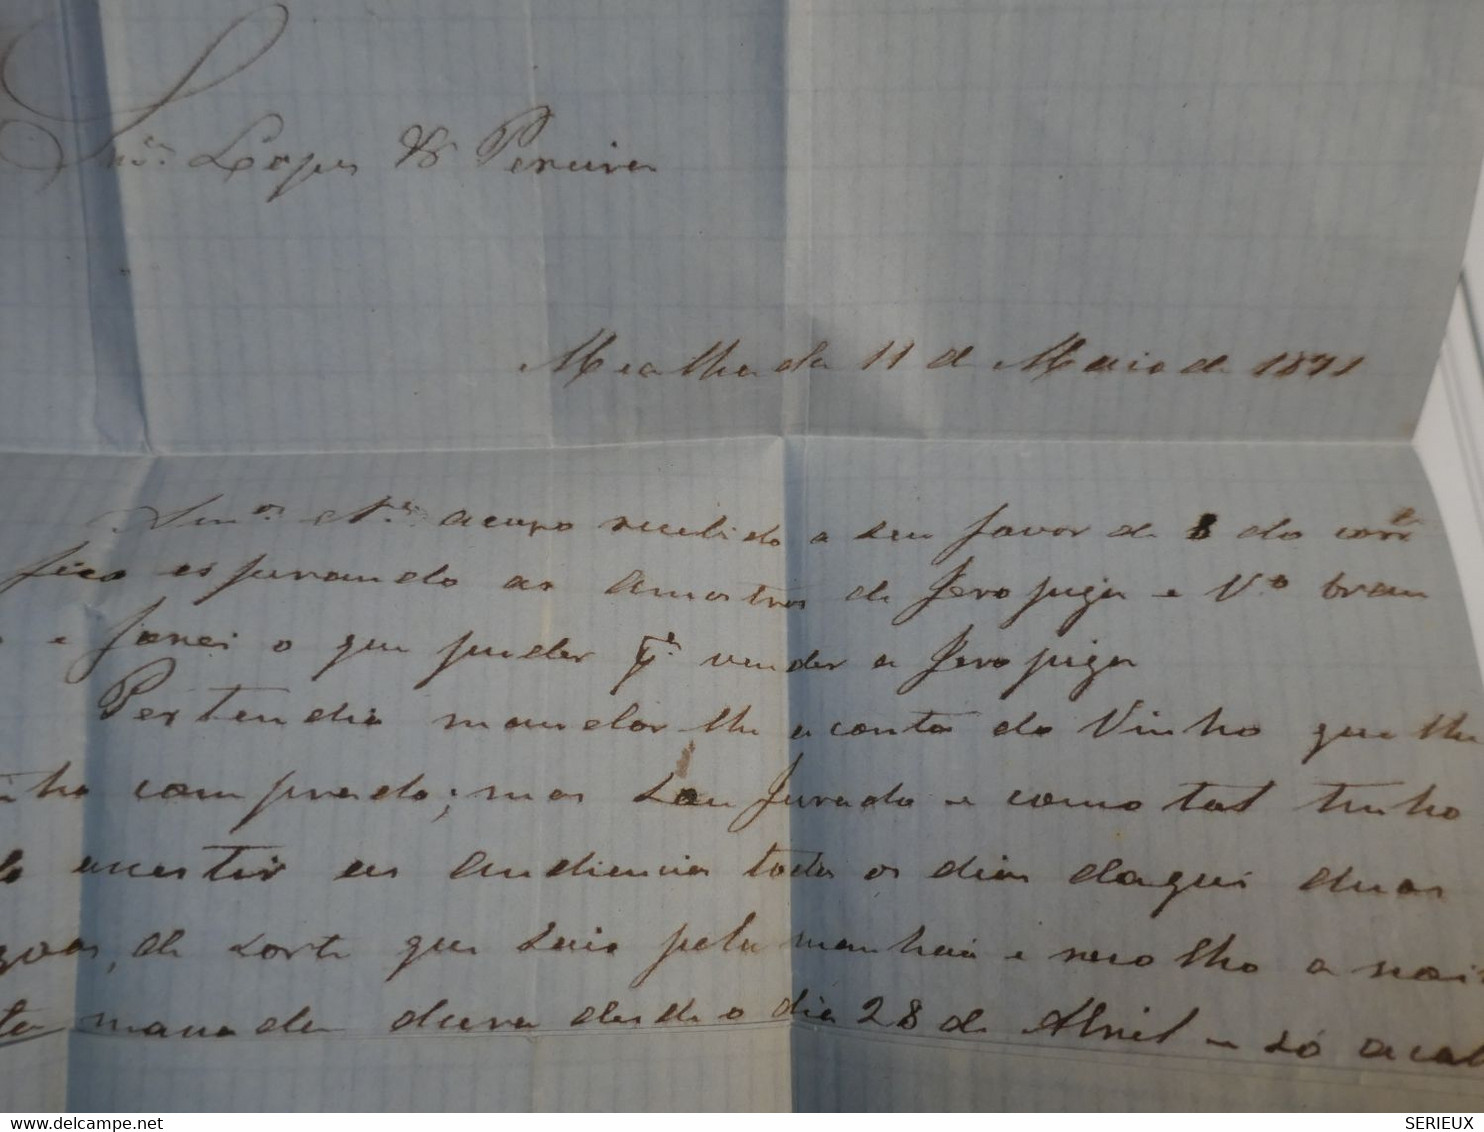 Snrs. Lopes & Pereira
Mealhada 11 de Maio de 1871
Am.os e Sr.s acuzo recebido a seu favor de 8 do corr.e
fico esperando as Amostras de Jeropiga e V.o bran
e farei o que puder p.a vender a Jeropiga
Pertendia mandar lhe a conta do Vinho que lhe
comprado; mas Sou Jurado e como tal tenho
acestir as Audiencias todos os dias daqui duas
goas, de sorte que Saio pela manhaã e recolho a noi
massada dura desde o dia 28 de Abril e só acab
delcampe.net
SERIEUX